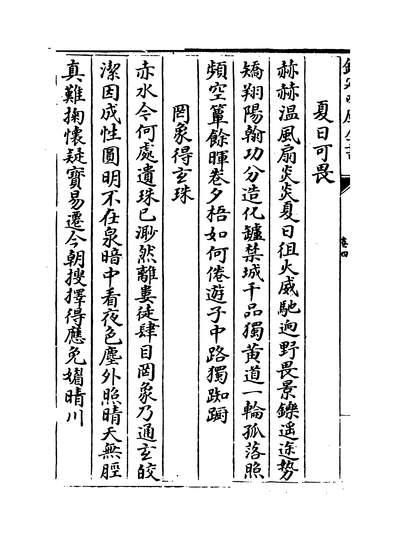 卷四
夏日可畏
赫赫温風扇炎炎夏日徂火威馳迥野畏景鑠遥途勢
矯翔陽翰功分造化鑪禁城千品獨黄道一輪孤落照
頻空簟餘暉卷夕梧如何倦遊子中路獨踟蹰
罔象得玄珠
赤水今何處遺珠已渺然離婁徒肆目罔象乃通玄皎
潔因成性圓明不在泉暗中看夜色塵外照晴天無脛
真難掬懷疑寶易遷今朝搜擇得應免媚晴川